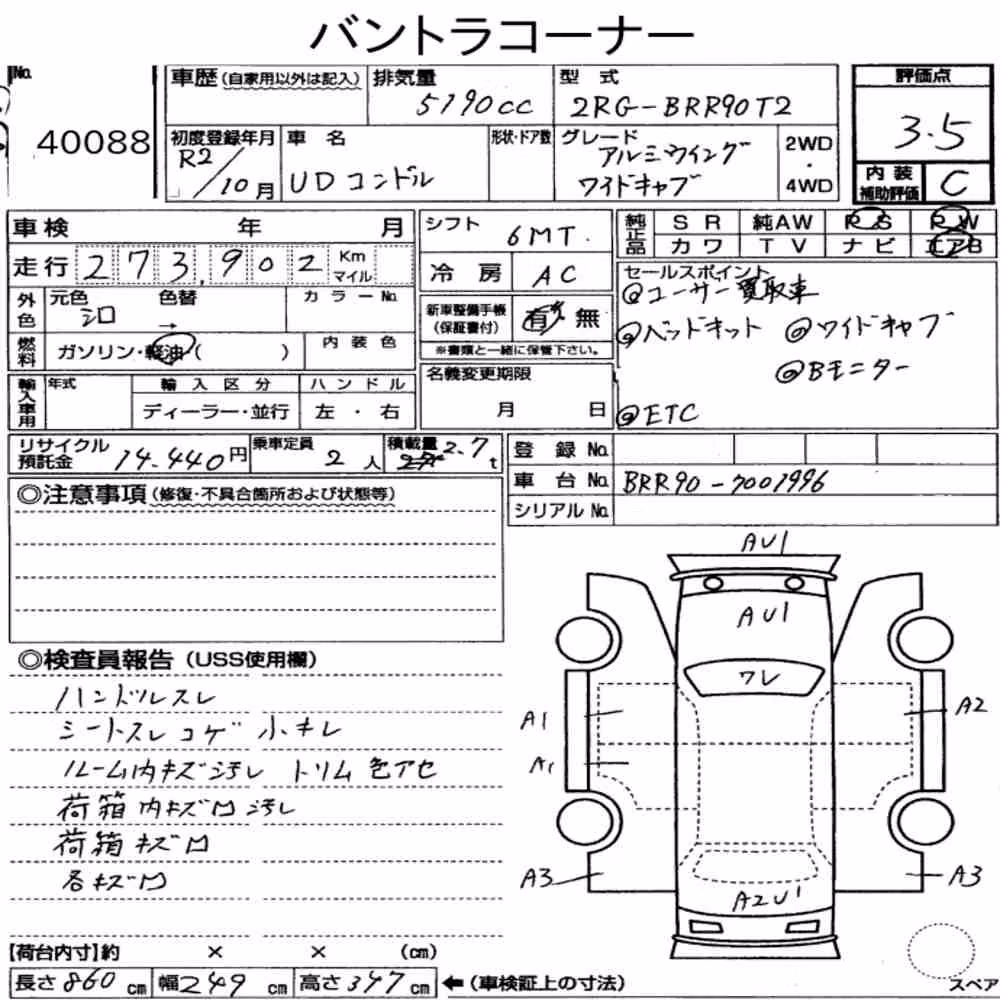 バントラコーナー
No. 40088
車歴(自家用以外は記入)
排気量 5190cc
型式 2RG-BRR90T2
評価点 3.5
初度登録年月 R2/10月
車名 UDコンドル
形状・ドア数
グレード アルミウイング
ワイドキャブ
2WD・4WD
内装補助評価 C
車検 年 月
走行 273,902 Km マイル
シフト 6MT.
冷房 AC
純正品 SR 純AW PS PW
カワ TV ナビ エアB
外色 元色 シロ 色替 →
カラーNo.
燃料 ガソリン・軽油・( )
内装色
新車整備手帳(保証書付) 有・無
※書類と一緒に保管下さい。
セールスポイント
@ユーザー買取車
@ベッドキット @ワイドキャブ
@Bモニター
@ETC
輸入車用 年式
輸入区分 ディーラー・並行
ハンドル 左・右
名義変更期限
月 日
リサイクル預託金 14.440円
乗車定員 2人
積載量 2.7t
登録No.
車台No. BRR90-7001996
シリアルNo.
◎注意事項(修復・不具合箇所および状態等)
◎検査員報告(USS使用欄)
ハンドルスレ
シートスレ コゲ 小キレ
ルーム内キズ汚レ トリム色アセ
荷箱内キズ凹汚レ
荷箱キズ凹
各キズ凹
AU1
AU1
ワレ
A1
A2
A1
A3
A3
A2U1
スペア
【荷台内寸】約 × × (cm)
長さ860cm 幅249cm 高さ347cm ←(車検証上の寸法)